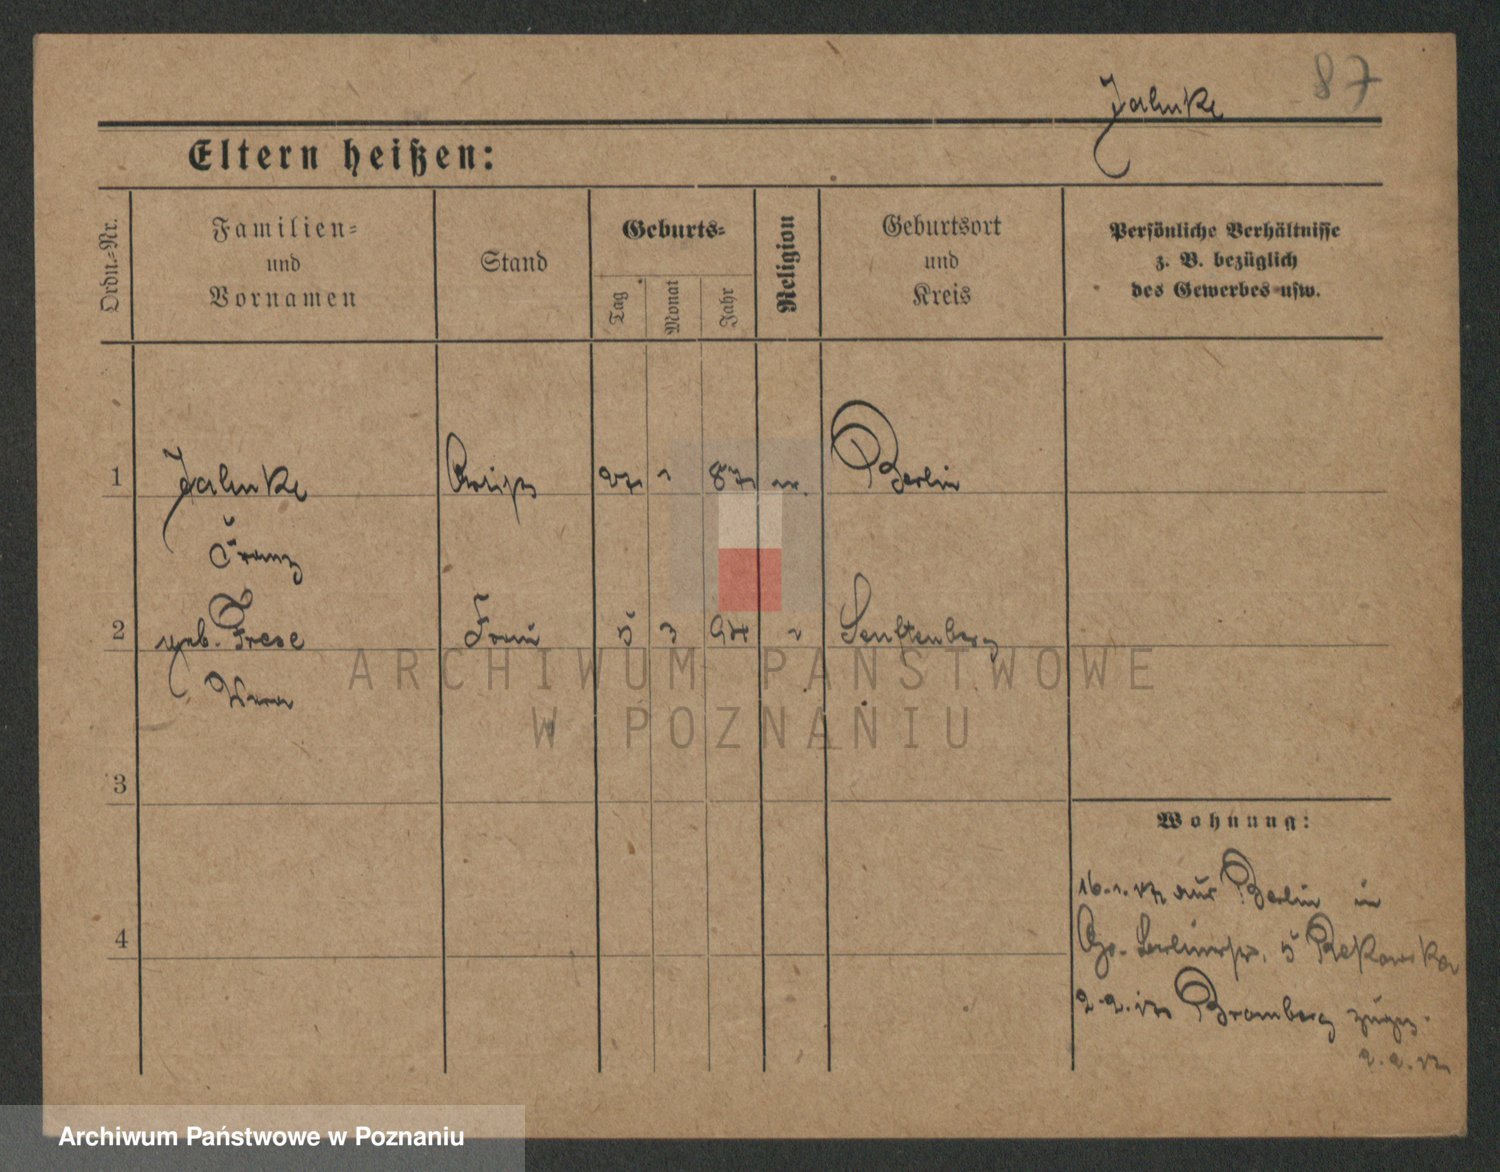 87
Jahnke
Eltern heißen:
Ordn.-Nr.
Familien-
und
Vornamen
Stand
Geburts-
Tag
Monat
Jahr
Religion
Geburtsort
und
Kreis
Persönliche Verhältnisse
z. B. bezüglich
des Gewerbes usw.
1 Jahnke 27 1 87 Berlin
Franz
2 geb. Frese Frau 5 3 94 Senftenberg
3
4
Wohnung:
16.1.17 aus Berlin in
5 Rekowska
2.2.17 Bromberg
2.2.17
ARCHIWUM PAŃSTWOWE
W POZNANIU
Archiwum Państwowe w Poznaniu